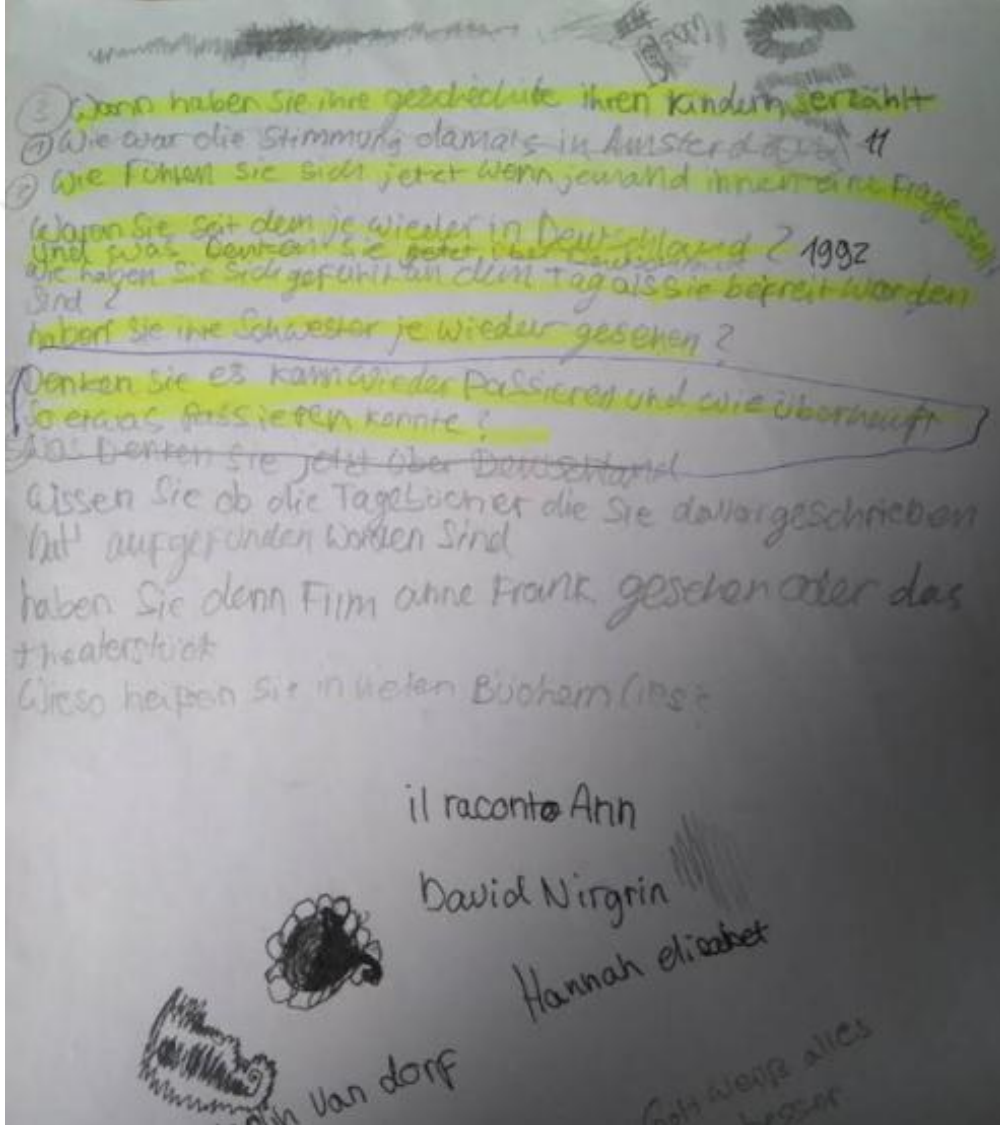 ③ Wann haben Sie ihre geschichte ihren Kindern erzählt
① Wie war die Stimmung damals in Amsterdam 11
② Wie Fühlen Sie sich jetzt wenn jemand ihnen eine Frage stellt
Waren Sie seit dem je wieder in Deutschland ? 1992
Und was Denken Sie jetzt über Deutschland
Wie haben Sie sich gefühlt an dem Tag als sie befreit worden
sind ?
haben Sie ihre Schwester je wieder gesehen ?
Denken Sie es kann wieder Passieren und wie überhauft
so etwas Passieren konnte ?
Was Denken Sie jetzt über Deutschland
Wissen Sie ob die Tagebücher die Sie davor geschrieben
hat aufgefunden worden Sind
haben Sie denn Film anne Frank gesehen oder das
theaterstück
Wieso heißen Sie in vielen Büchern
il raconto Ann
David Nirgrin
Hannah elisabet
van dorf
Gott weiß alles
besser